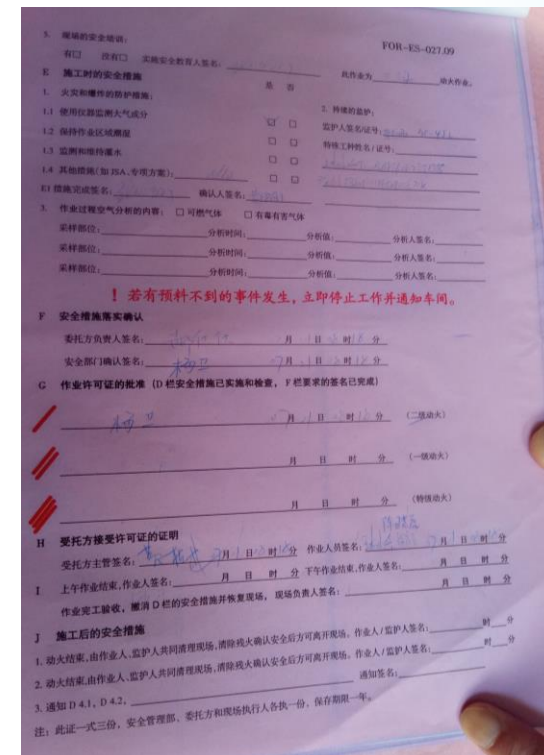 FOR-ES-027.09
5. 现场的安全培训：
有□ 没有□ 实施安全教育人签名： 此作业为 动火作业。
E 施工时的安全措施
是 否
1. 火灾和爆炸的防护措施：
2. 持续的监护：
1.1 使用仪器监测大气成分 □ □
监护人签名/证号：
1.2 保持作业区域潮湿 □ □
特殊工种姓名/证号：
1.3 监测和维持灌水 □ □
1.4 其他措施(如 JSA、专项方案)： □ □
E1 措施完成签名： 确认人签名：
3. 作业过程空气分析的内容： □ 可燃气体 □ 有毒有害气体
采样部位： 分析时间： 分析值： 分析人签名：
采样部位： 分析时间： 分析值： 分析人签名：
采样部位： 分析时间： 分析值： 分析人签名：
！若有预料不到的事件发生，立即停止工作并通知车间。
F 安全措施落实确认
委托方负责人签名： 月 日 时 分
安全部门确认签名：杨卫 月 日 时 分
G 作业许可证的批准（D 栏安全措施已实施和检查， F 栏要求的签名已完成）
杨卫 月 日 时 分 （二级动火）
月 日 时 分 （一级动火）
月 日 时 分 （特级动火）
H 受托方接受许可证的证明
受托方主管签名： 月 日 时 分 作业人员签名： 月 日 时 分
I 上午作业结束，作业人签名： 月 日 时 分 下午作业结束，作业人签名： 月 日 时 分
作业完工验收，撤消 D 栏的安全措施并恢复现场， 现场负责人签名： 月 日 时 分
J 施工后的安全措施
1. 动火结束，由作业人、监护人共同清理现场，清除残火确认安全后方可离开现场。作业人/监护人签名： 时 分
2. 动火结束，由作业人、监护人共同清理现场，清除残火确认安全后方可离开现场。作业人/监护人签名： 时 分
3. 通知 D 4.1，D 4.2， 通知签名：
注：此证一式三份，安全管理部、委托方和现场执行人各执一份，保存期限一年。